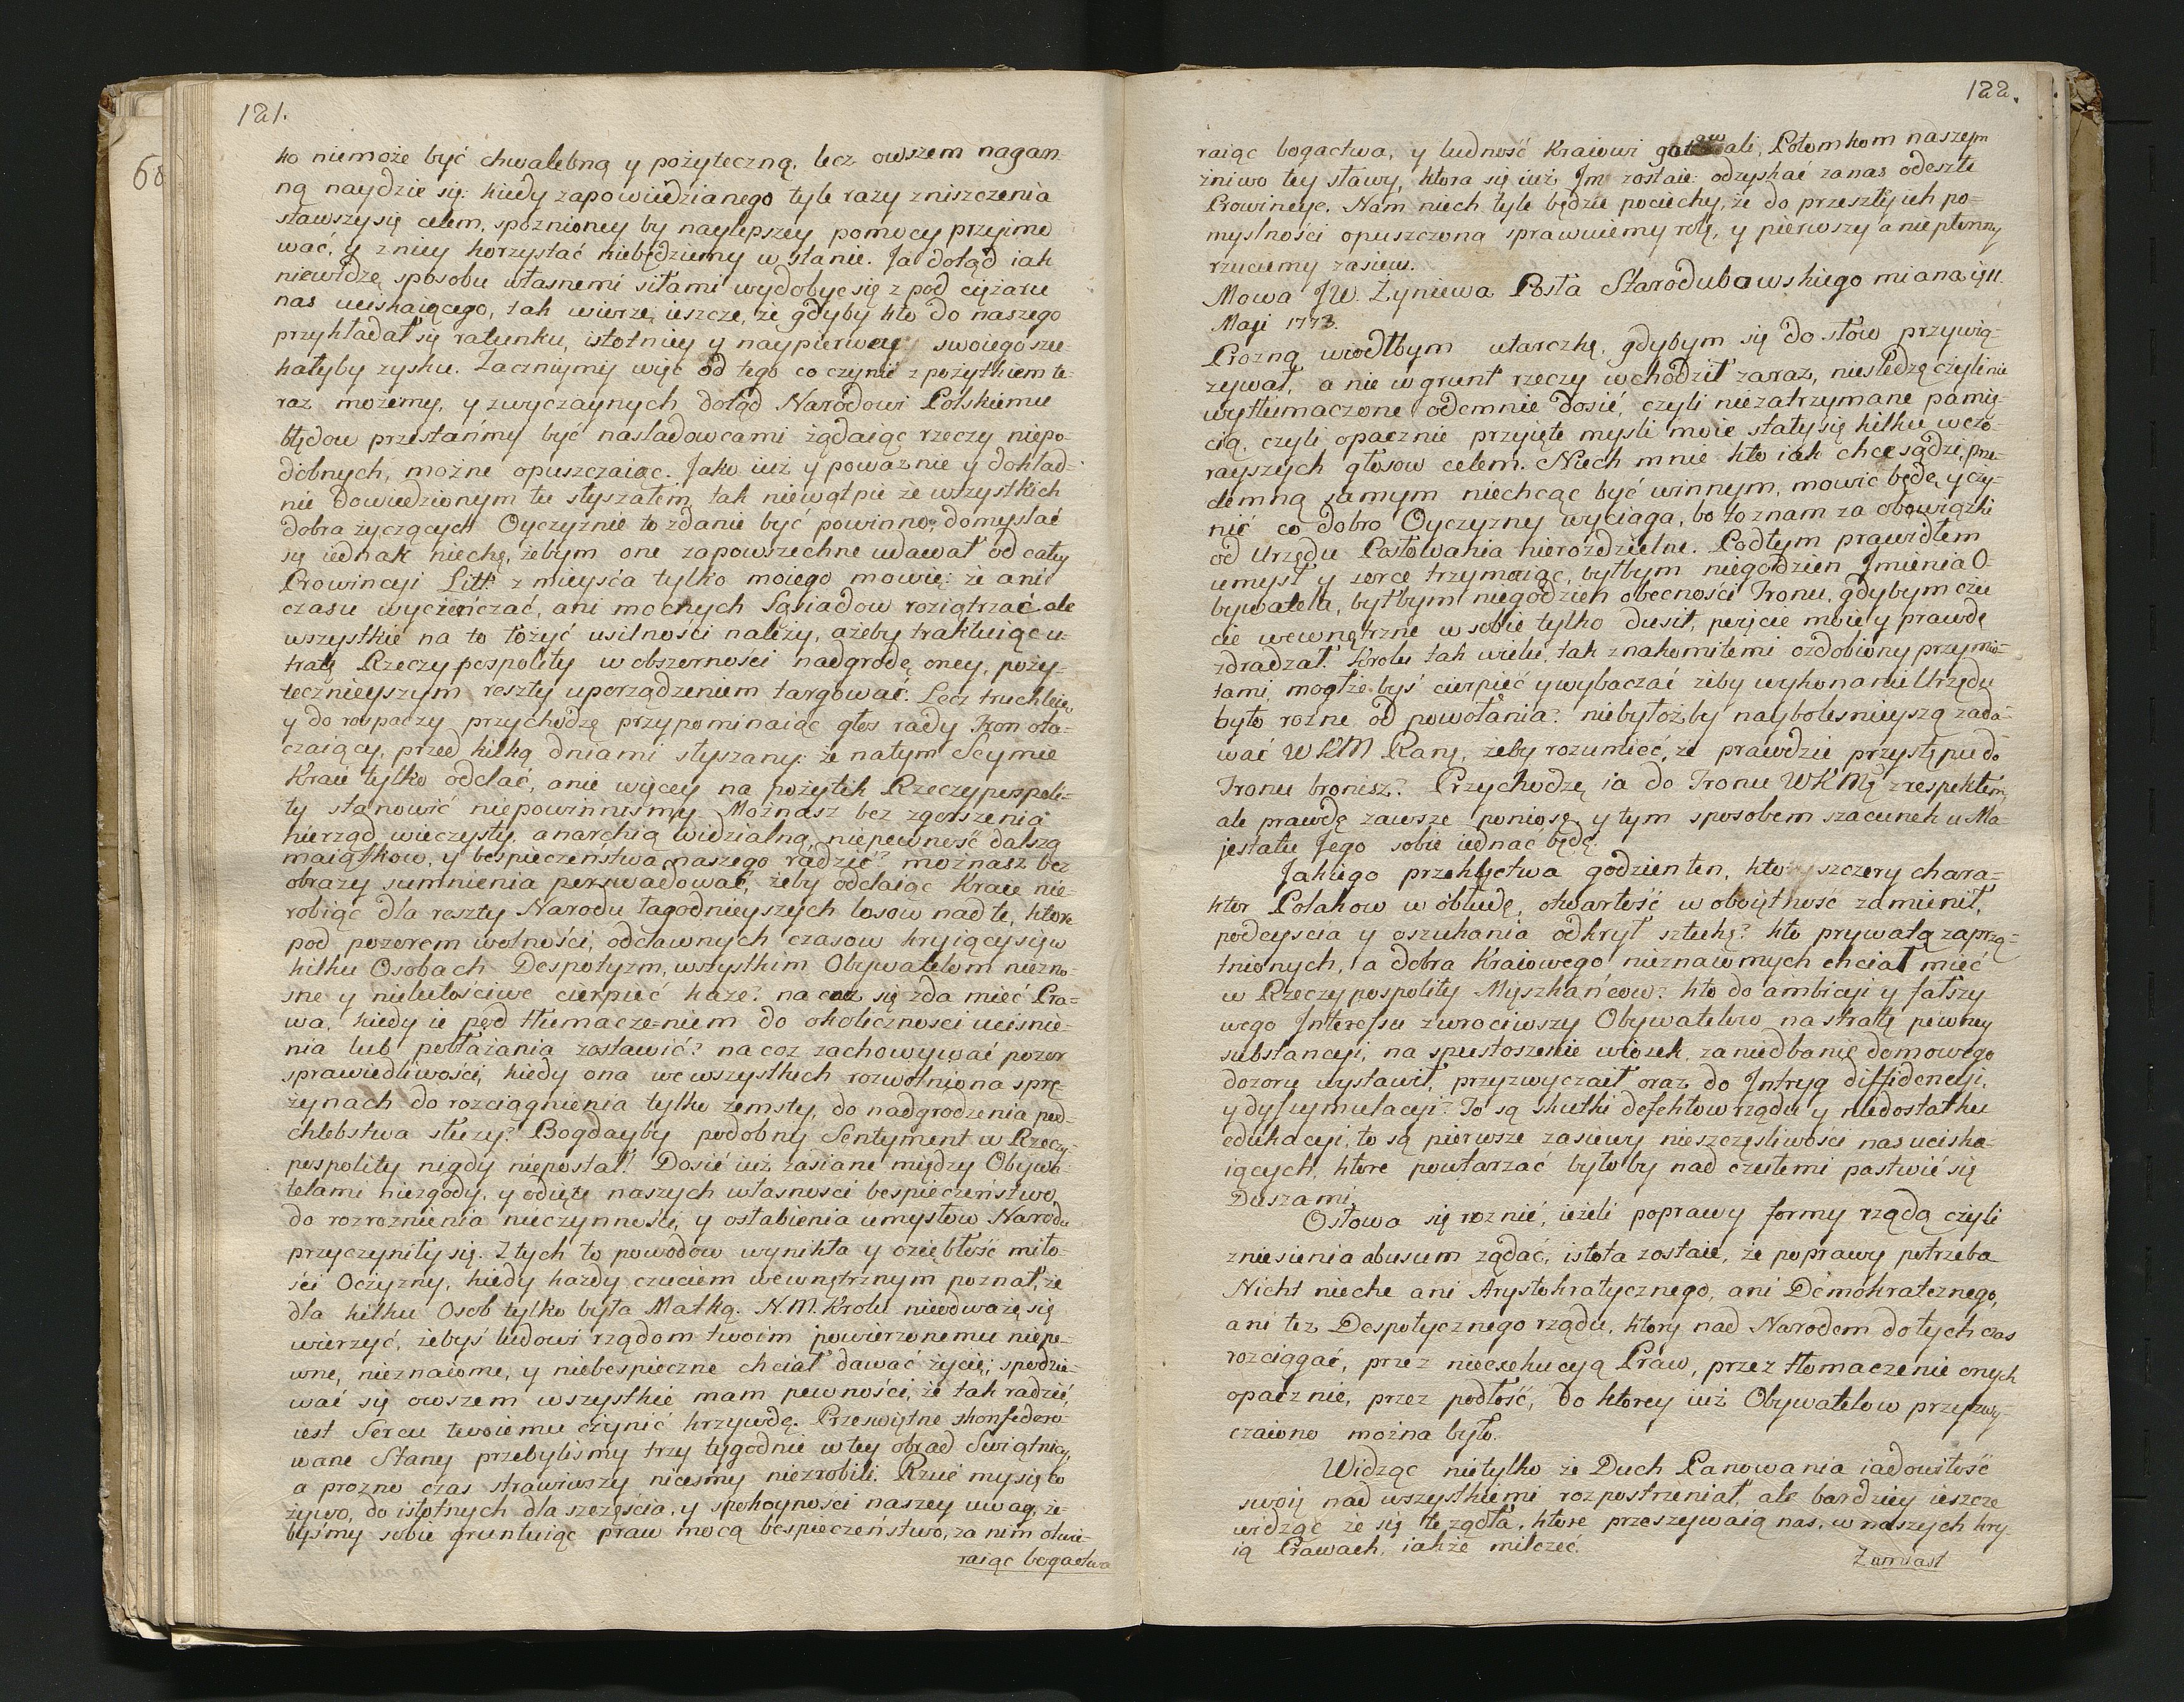 121.
68
ko niemoże być chwalebną y pożyteczną, lecz owszem nagan-
ną naydzie się: kiedy zapowiedzianego tyle razy zniszczenia
stawszysię celem, spoznioney by naylepszey pomocy przyimo
wać, y zniey korzystać niebędziemy w stanie. Ja dotąd iak
niewidzę sposobu własnemi siłami wydobyć się z pod ciężaru
nas uciskaiącego, tak wierzę ieszcze, że gdyby kto do naszego
przykładał się ratunku, istotniey y naypierwey swoiego szu-
kałyby zysku. Zacznijmij więc od tego co czynić z pożytkiem te-
raz możemy, y zwyczaynych dotąd Narodowi Polskiemu
błędow przestańmy być nasladowcami żądaiąc rzeczy niepo-
dobnych, możne opuszczaiąc. Jako iuż y poważnie y dokład-
nie dowiedzionym tu słyszałem, tak niewątpie że wszystkich
dobra życzących Oyczyznie to zdanie być powinno; domyslać
się iednak niechę, żebym one zapowszechne udawał od cały
Prowincyi Litt: z mieysca tylko moiego mowię: że ani
czasu wycieńczać, ani mocnych Sąsiadow roziątrzać ale
wszystkie na to łożyć usilności należy, ażeby traktuiąc u-
tratę Rzeczypospolity w obszerności nadgrodę oney, poży-
tecznieyszym reszty uporządzeniem targować. Lecz truchleię,
y do rospaczy przychodzę przypominaiąc głos rady Tron ota-
czaiący, przed kilką dniami słyszany: że natym Seymie
Kraie tylko oddać, anie więcey na pożytek Rzeczypospoli-
ty stanowić niepowinnismy. Możnasz bez zgorszenia
nierząd wieczysty, anarchią widzialną, niepewność dalszą
maiątkow, y bespieczeństwa naszego radzić? możnasz bez
obrazy sumnienia perswadować, żeby oddaiąc Kraie nie-
robiąc dla reszty Narodu łagodnieyszych losow nad te, ktore
pod pozorem wolności, oddawnych czasow kryiący się w
kilku Osobach Despotyzm, wszystkim Obywatelom niezno-
sne y nielutościwe cierpieć każe? na coż się zda mieć Pra-
wa, kiedy ie pod tłumaczeniem do okoliczności uciśnie-
nia lub pobłażania zostawić? na coż zachowywać pozor
sprawiedliwości, kiedy ona we wszystkich rozwolniona sprę-
żynach do rozciągnienia tylko zemsty, do nadgrodzenia pod-
chlebstwa służy? Bogdayby podobny Sentyment w Rzeczy-
pospolity nigdy niepostał! Dosić iuż zasiane między Obywa-
telami niezgody, y odięte naszych własnosci bespieczeństwo,
do rozroznienia nieczynności, y osłabienia umysłow Narodu
przyczyniły się. Ztych to powodow wynikła y oziębłość miło-
ści Oczyzny, kiedy każdy czuciem wewnętrznym poznał, że
dla kilku Osob tylko była Matką. N. M. Krolu nieodważę się
wierzyć, żebyś ludowi rządom twoim powierzonemu niepe-
wne, nieznaiome, y niebespieczne chciał dawać życie; spodzie-
wać się owszem wszystkie mam pewności, że tak radzić,
iest Sercu twoiemu czynić krzywdę. Prześwietne skonfedero-
wane Stany przebylismy trzy tygodnie w tey obrad Swiątnicy,
a prozno czas strawiwszy nicesmy niezrobili. Rzuć mysię to
żywo, do istotnych dla szczęścia, y spokoyności naszey uwag, że-
byśmy sobie gruntuiąc praw mocą bespieczeństwo, za nim otwie-
raiąc bogactwa
122.
raiąc bogactwa, y ludność Kraiowi ali, Potomkom naszym
żniwo tey sławy, ktora się iuż Im zostaie: odzyskać zanas odeszłe
Prowincye. Nam niech tyle będzie pociechy, że do przeszłych po-
myslności opuszczoną sprawuiemy rolę, y pierwszy a niepłonny
rzuciemy zasiew.
Mowa JW. Zyniewa Posła Starodubowskiego miana 11
Maji 1773.
Prozną wiodłbym utarczkę, gdybym się do słow przywią-
zywał, a nie w grunt rzeczy wchodził zaraz, niesledzę czyli nie
wytłumaczone odemnie dosić, czyli niezatrzymane pamię-
cią, czyli opacznie przyięte mysli moie stały się kilku wczo-
rayszych głosow celem. Niech mnie kto iak chce sądzi, prze-
demną samym niechcąc być winnym, mowić będę, y czy-
nić co dobro Oyczyzny wyciąga, bo to znam za obowiązki
od Urzędu Posłowania nierozdzielne. Podtym prawidłem
umysł y serce trzymaiąc, byłbym niegodzien Imienia O-
bywatela, byłbym niegodzien obecności Tronu, gdybym czu
cie wewnętrzne w sobie tylko dusił, poięcie moie y prawdę
zdradzał. Krolu tak wielu, tak znakomitemi ozdobiony przymio-
tami, mogłże byś cierpieć y wybaczać żeby wykonanie Urzędu
było rozne od powołania? niebyłożby naybolesnieyszą zada-
wać WKM Ranę, żeby rozumieć, że prawdzie przystępu do
Tronu bronisz? Przychodzę ia do Tronu WKMę z respektem,
ale prawdę zawsze poniosę, y tym sposobem szacunek u Ma-
jestatu Jego sobie iednać będę.
Jakiego przeklęctwa godzien ten, kto szczery chara-
kter Polakow w obłudę, otwartość w oboiętność zamienił,
podeyscia y oszukania odkrył sztukę? kto prywatą zaprzą-
tnionych, a dobra Kraiowego nieznawmych chciał mieć
w Rzeczypospolity Myszkańcow? kto do ambicyi y fałszy
wego Interessu zwrociwszy Obywatelow, na stratę pewney
substancyi, na spustoszenie włosek, zaniedbanie domowego
dozoru wystawił, przyzwyczaił oraz do Intryg diffidencyi,
y dyssymulacyi? To są skutki defektow rządu y niedostatku
edukacyi, to są pierwsze zasiewy nieszczęsliwości nas uciska-
iących, ktore powtarzać byłoby nad czułemi pastwić się
Duszami.
Osłowa się roznić, ieżeli poprawy formy rządą czyli
zniesienia abusum ządać, istota zostaie, że poprawy potrzeba
Nicht niechę ani Arystokratycznego, ani Demokratcznego,
ani też Despotycznego rządu, ktory nad Narodem dotych czas
rozciągać, przez nieexekucyą Praw, przez tłomaczenie onych
opacznie, przez podłość, do ktorey iuż Obywatelow przyzwy-
czaiono można było.
Widząc nietylko że Duch Panowania iadowitość
swoię nad wszystkiemi rozpostrzeniał, ale bardziey ieszcze
widząc że się te żądła, ktore przeszywaią nas, w naszych kry-
ią Prawach, iakże milczeć.
Zamiast